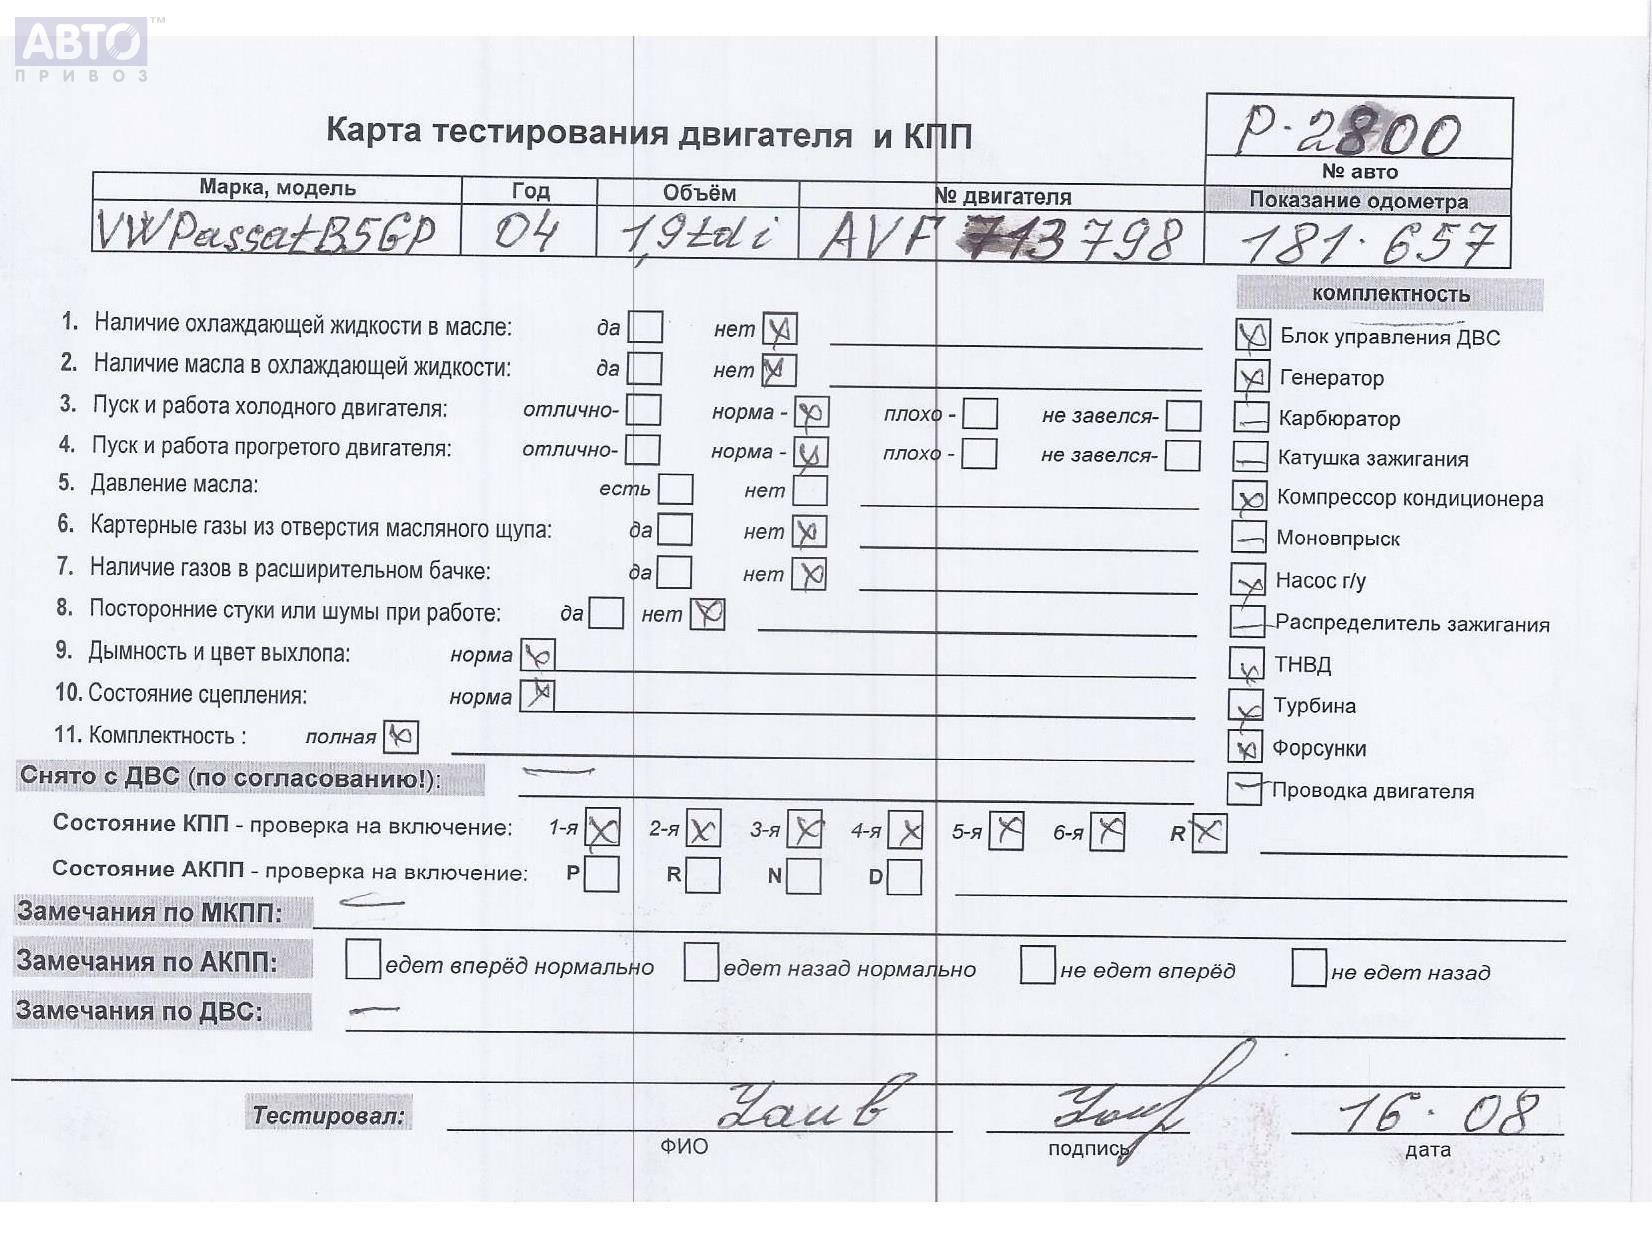 АВТО™
ПРИВОЗ
Карта тестирования двигателя и КПП
Р-2800
№ авто
Марка, модель Год Объём № двигателя Показание одометра
VWPassatB5GP 04 1,9tdi AVF 713798 181.657
комплектность
1. Наличие охлаждающей жидкости в масле: да нет
2. Наличие масла в охлаждающей жидкости: да нет
3. Пуск и работа холодного двигателя: отлично- норма - плохо - не завелся-
4. Пуск и работа прогретого двигателя: отлично- норма - плохо - не завелся-
5. Давление масла: есть нет
6. Картерные газы из отверстия масляного щупа: да нет
7. Наличие газов в расширительном бачке: да нет
8. Посторонние стуки или шумы при работе: да нет
9. Дымность и цвет выхлопа: норма
10. Состояние сцепления: норма
11. Комплектность : полная
Блок управления ДВС
Генератор
Карбюратор
Катушка зажигания
Компрессор кондиционера
Моновпрыск
Насос г/у
Распределитель зажигания
ТНВД
Турбина
Форсунки
Проводка двигателя
Снято с ДВС (по согласованию!): —
Состояние КПП - проверка на включение: 1-я 2-я 3-я 4-я 5-я 6-я R
Состояние АКПП - проверка на включение: P R N D
Замечания по МКПП: —
Замечания по АКПП: едет вперёд нормально едет назад нормально не едет вперёд не едет назад
Замечания по ДВС: —
Тестировал: 16.08
ФИО подпись дата